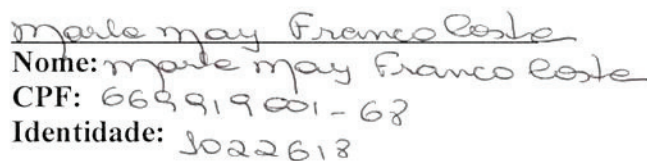 Marla May Franco Costa
Nome: Marla May Franco Costa
CPF: 669919001-68
Identidade: 1022618